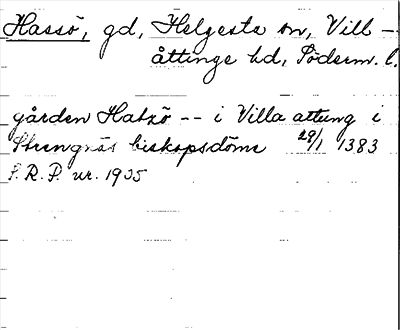 Hassö, gd, Helgesta sn, Vill-
åttinge hd, Söderm. l.
gården Hatzö -- i Villa attung i
Strengnäs biskopsdöme 29/1 1383
S.R.P. nr. 1935